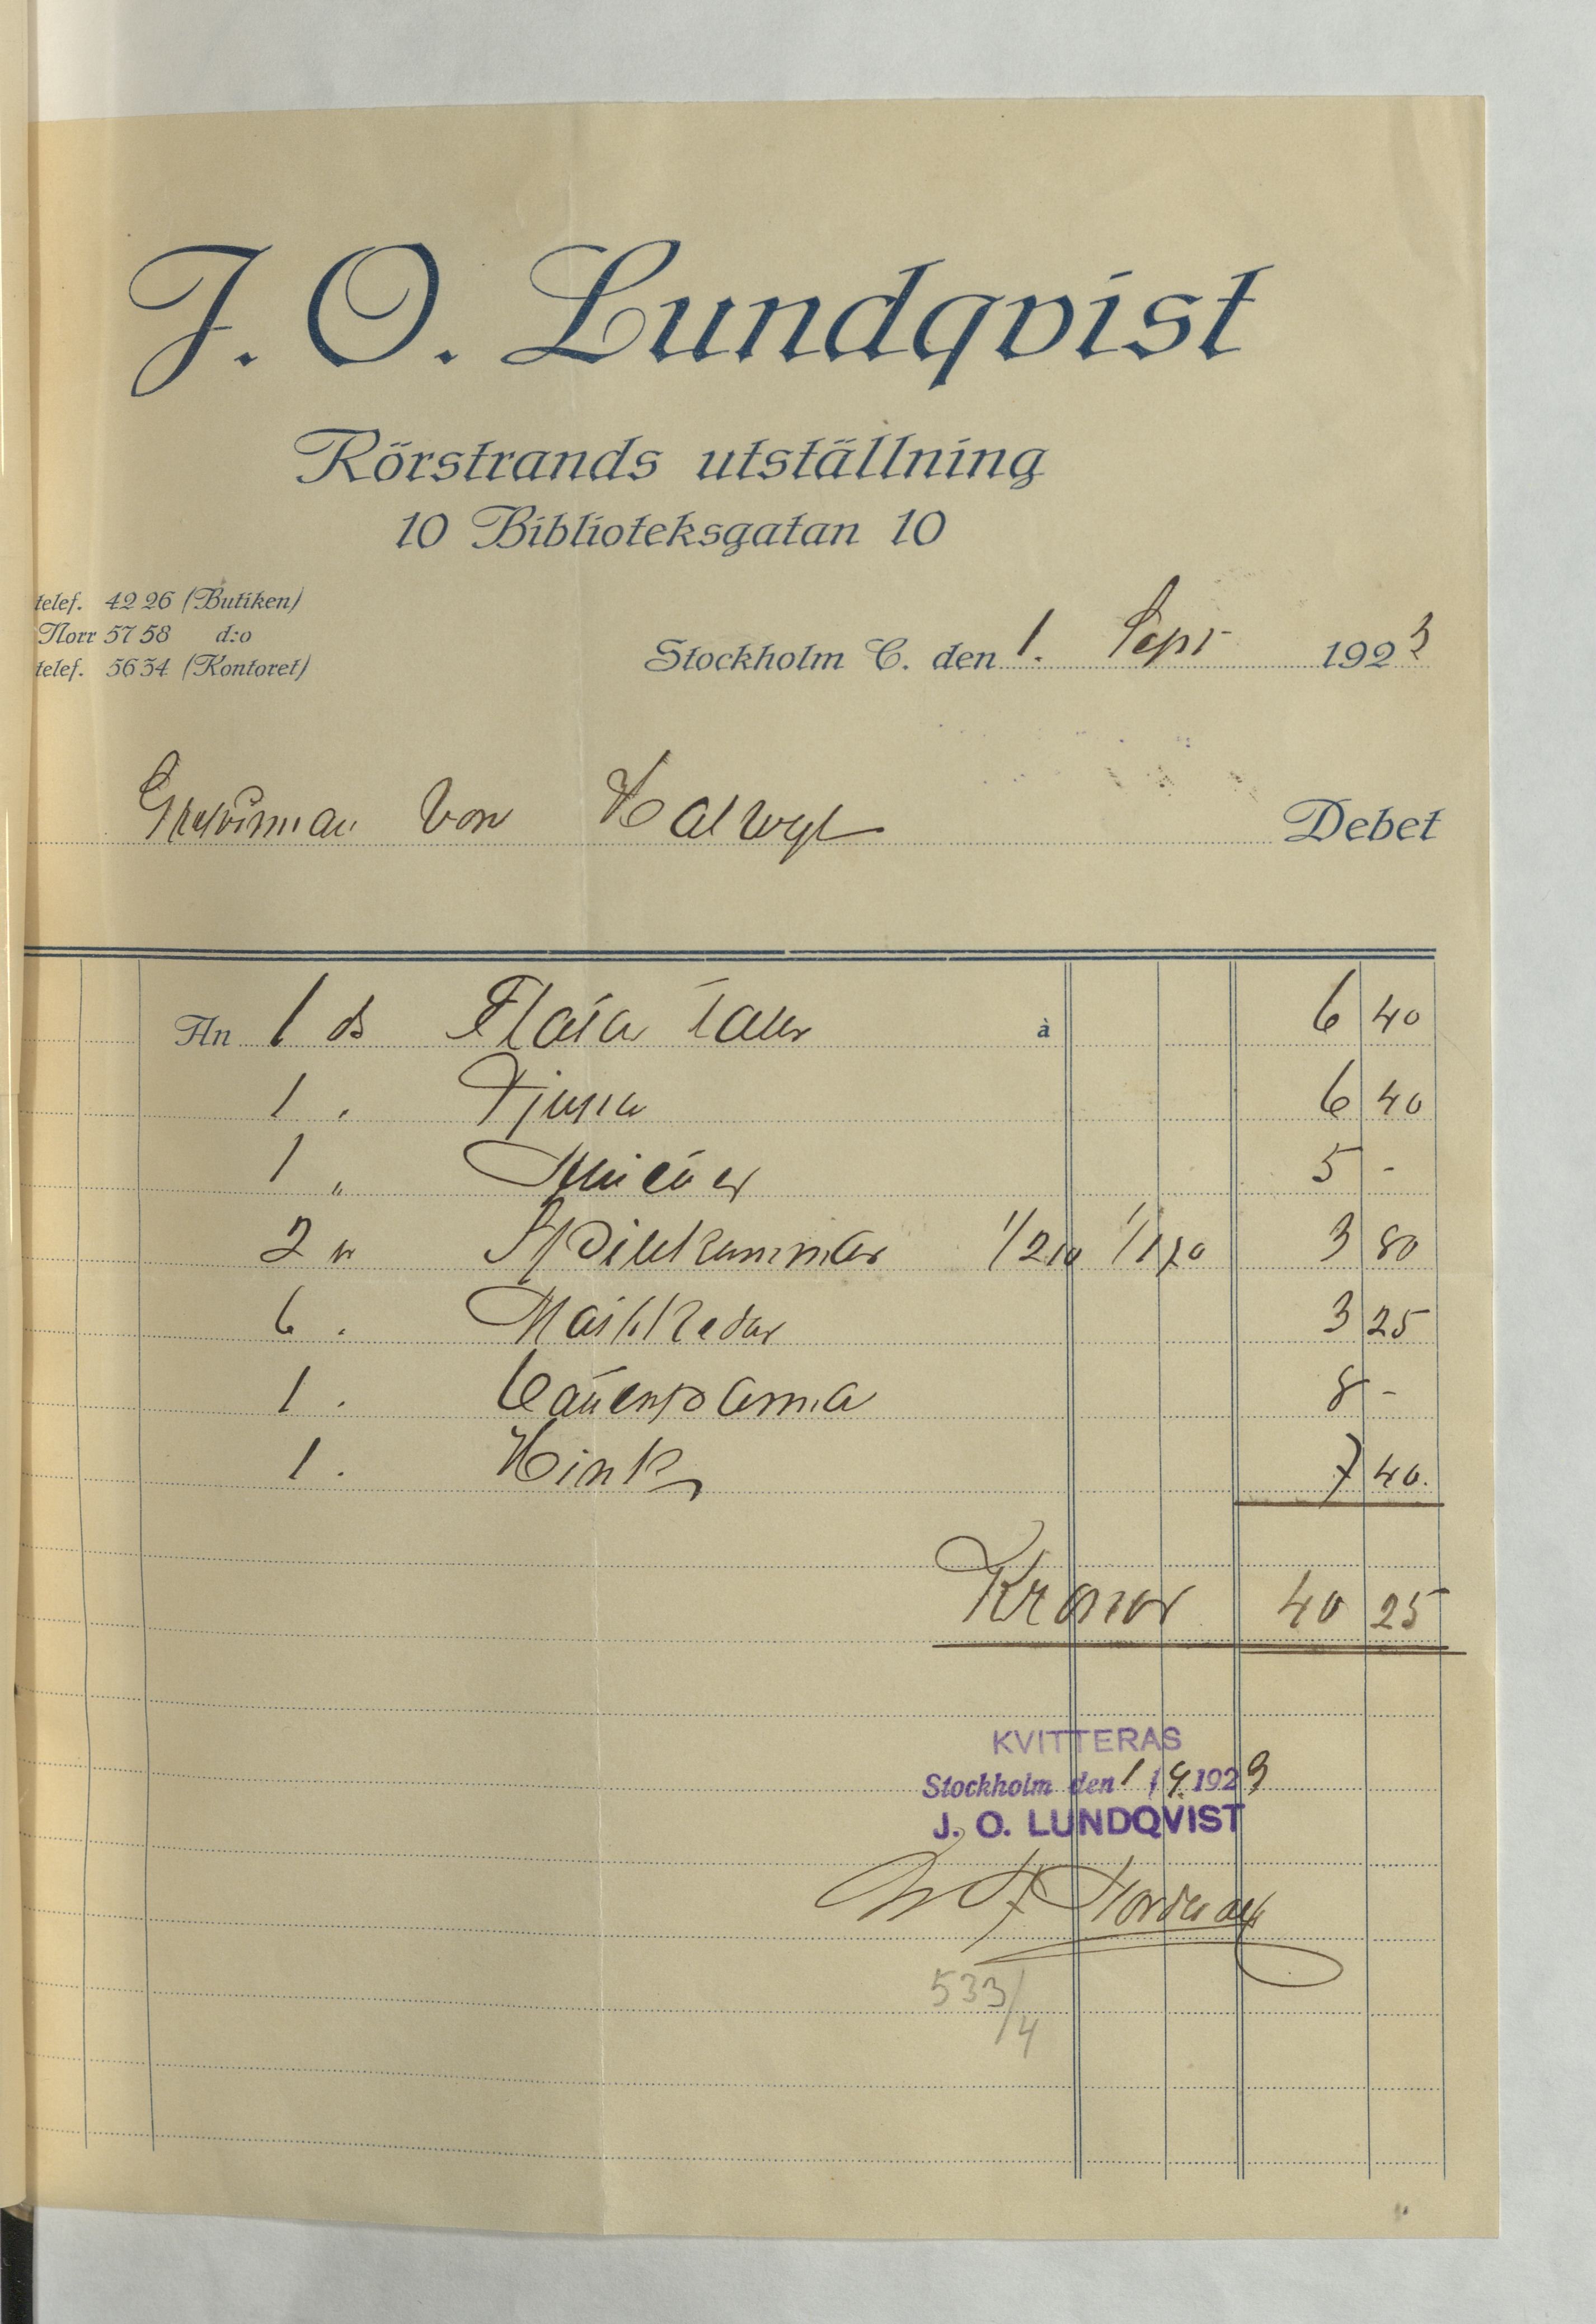 J. O. Lundqvist
Rörstrands utställning
10 Biblioteksgatan 10
telef. 42 26 (Butiken)
Norr 57 58 d:o
telef. 56 54 (Kontoret)
Stockholm C. den 1. Sept 1923
Grefvinnan von Hallwyl Debet
An 1 ds Flata Taller à 6 40
1 " Djupa 6 40
1 " 5 -
2 st Spillkummar 1/210 1/170 3 80
6 " 3 25
1 " Vattenkanna 8 -
1 " Hink 7 40
Kronor 40 25
KVITTERAS
Stockholm den 1/9 1923
J. O. LUNDQVIST
533/4